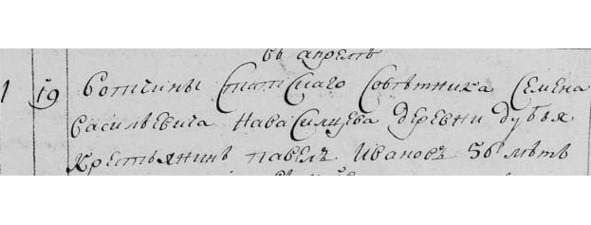 въ апрелѣ
1 19 Вотчины Статскаго Совѣтника Семена
Васильевича Навасильцева деревни дубья
Крестьянинъ павелъ Ивановъ 56 лѣтъ